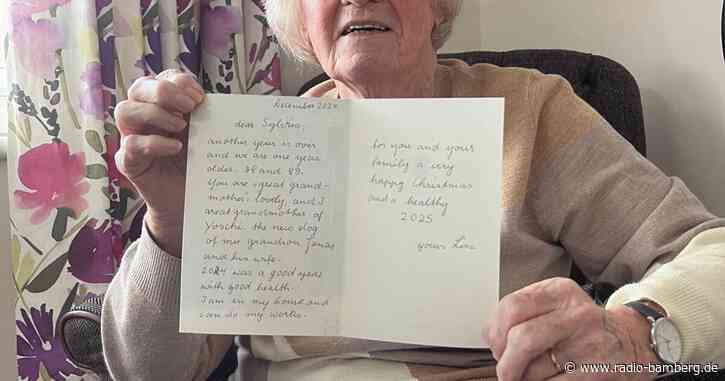 December 2024
dear Sylvia,
another year is over
and we are one year
older. 88 and 89.
You are "great grand-
mother" lovely, and I
great grandmother of
the new dog
of my grandson Jonas
and his wife.
2024 was a good year
with good health.
I am in my house and
can do my works.
for you and your
family a very
happy Christmas
and a healthy
2025
yours
© www.radio-bamberg.de